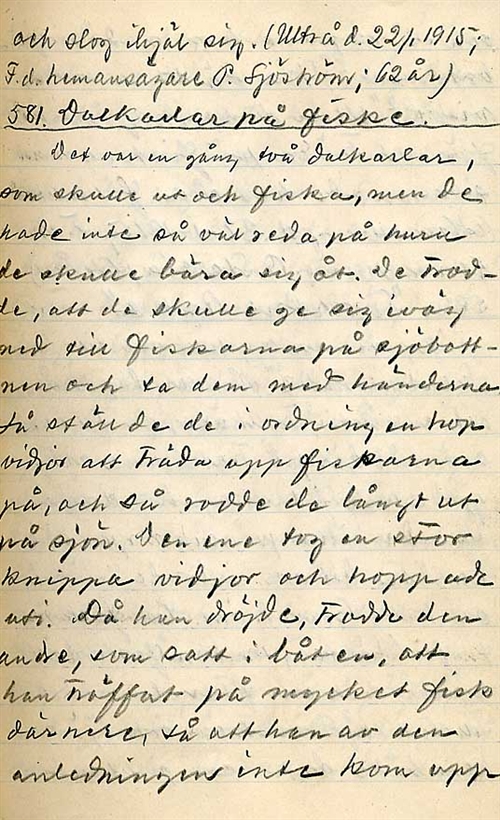 och slog ihjäl sig. (Ultrå d. 22/1 1915;
F.d. hemansägare P. Sjöström; 62 år)
581. Dalkarlar på fiske.
Det var en gång två dalkarlar,
som skulle ut och fiska, men de
hade inte så väl reda på huru
de skulle bära sig åt. De trod-
de, att de skulle ge sig iväg
ned till fiskarna på sjöbott-
nen och ta dem med händerna
så ställde de i ordning en hop
vidjor att träda upp fiskarna
på, och så rodde de långt ut
på sjön. Den ene tog en stor
knippa vidjor och hoppade
uti. Då han dröjde, trodde den
andre, som satt i båten, att
han träffat på mycket fisk
där nere, så att han av den
anledningen inte kom upp